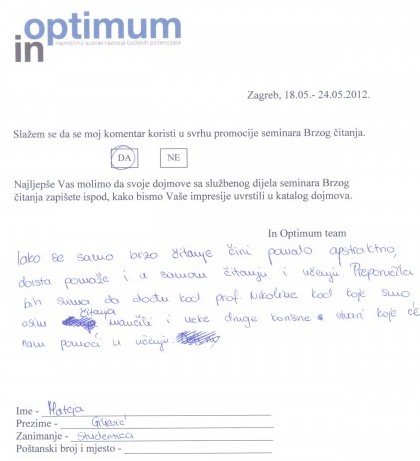 in optimum
najmoćniji sustav razvoja ljudskih potencijala
Zagreb, 18.05.- 24.05.2012.
Slažem se da se moj komentar koristi u svrhu promocije seminara Brzog čitanja.
DA NE
Najljepše Vas molimo da svoje dojmove sa službenog dijela seminara Brzog
čitanja zapišete ispod, kako bismo Vaše impresije uvrstili u katalog dojmova.
In Optimum team
Iako se samo brzo čitanje čini pomalo apstraktno,
doista pomaže i u samom čitanju i učenju. Preporučila
bih svima da dođu kod prof. Nikoline kod koje smo
osim čitanja naučili i neke druge korisne stvari koje će
nam pomoći u učenju.
Ime - Mateja
Prezime -
Zanimanje - Studentica
Poštanski broj i mjesto -